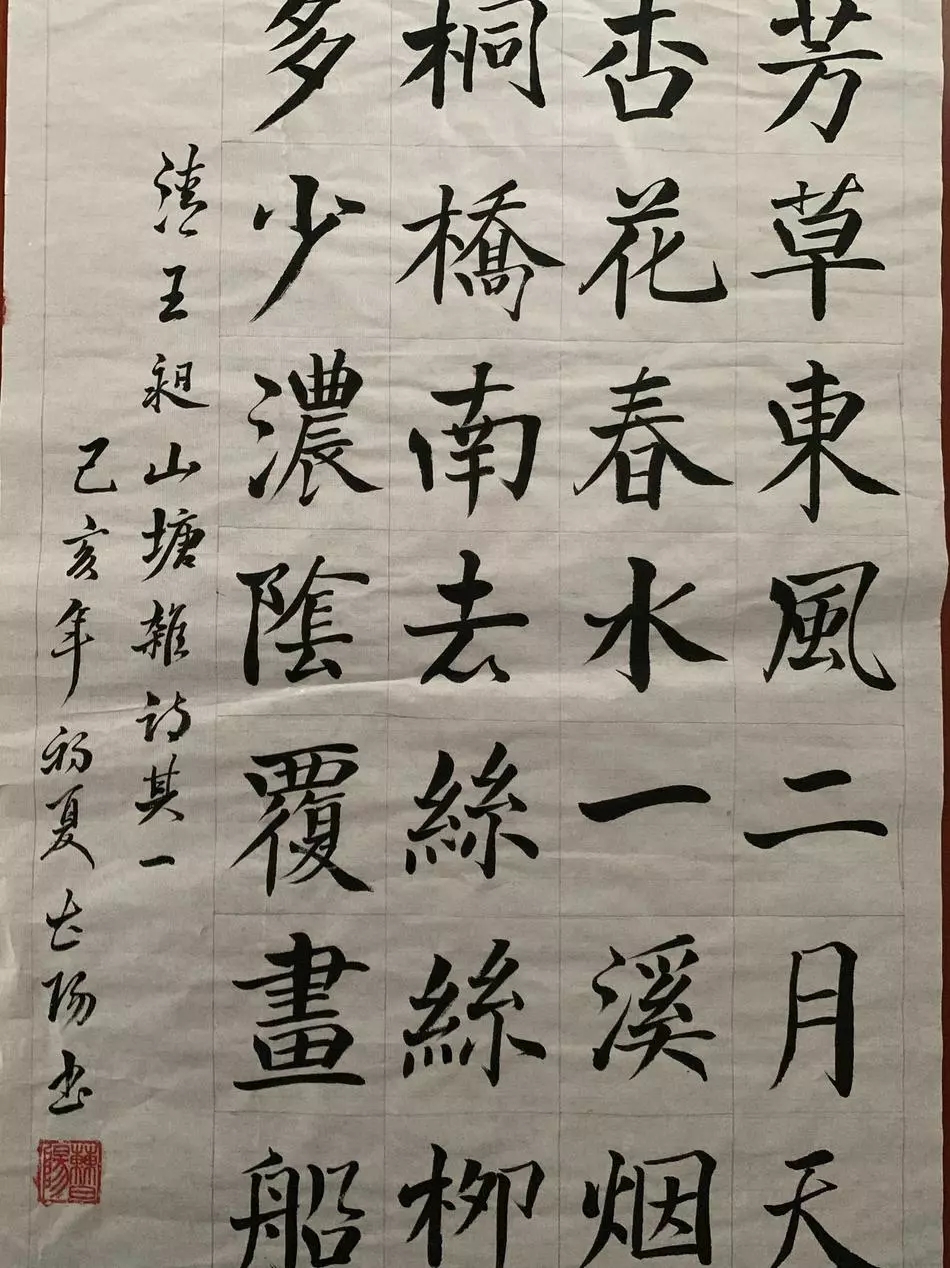 芳草東風二月天
杏花春水一溪烟
桐橋南去絲絲柳
多少濃陰覆畫船
清王昶山塘雜詩其一
己亥年初夏
陽書